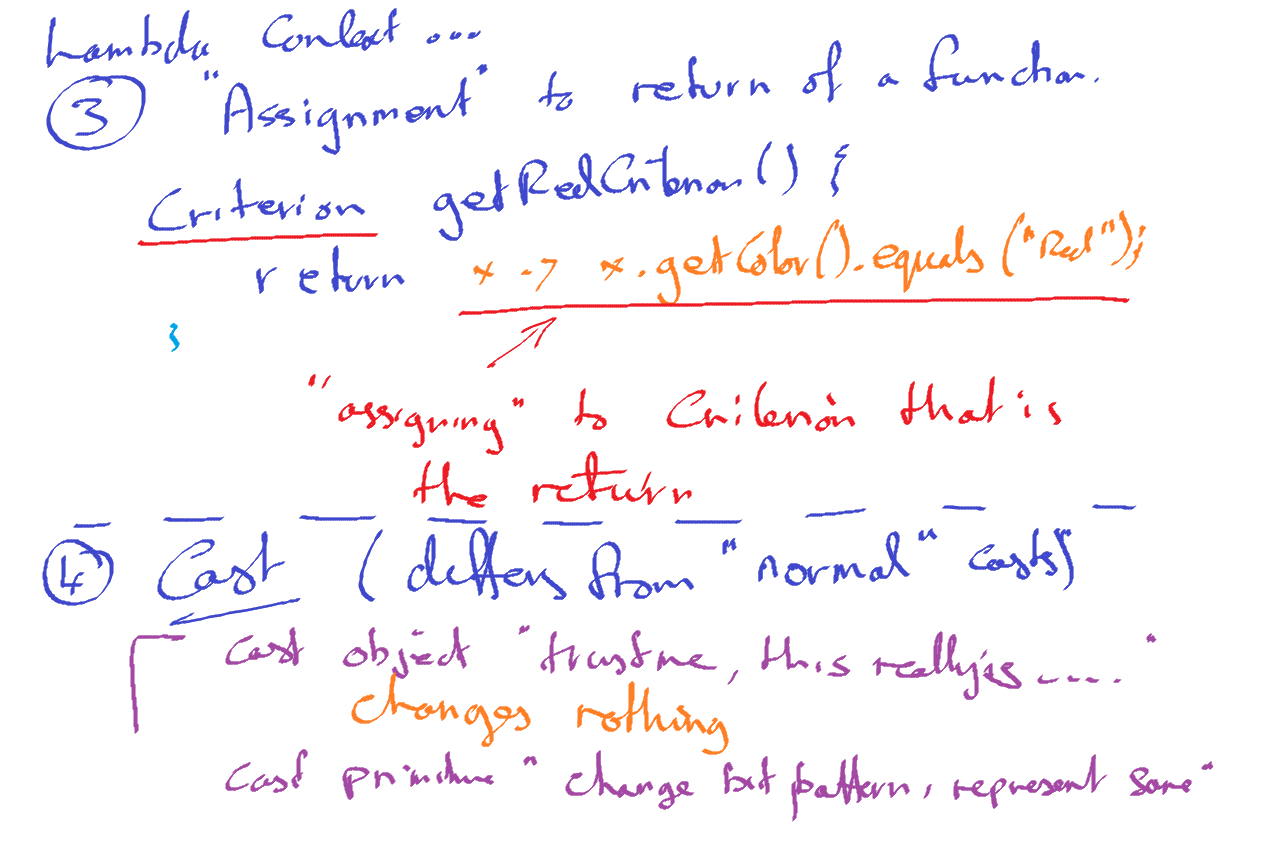 Lambda Context ...
③ "Assignment" to return of a function.
Criterion getRedCriterion() {
return x -> x.getColor().equals("Red");
}
"assigning" to Criterion that is
the return
④ Cast (differs from "normal" casts)
cast object "trust me, this really is ....."
changes nothing
cast primitive "change bit pattern, represent same"